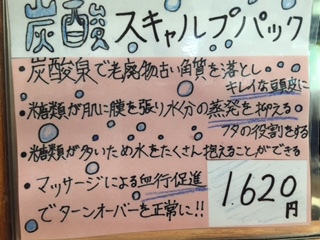 炭酸スキャルプパック
・炭酸泉で老廃物古い角質を落とし
キレイな頭皮に
・糖類が肌に膜を張り水分の蒸発を抑える
フタの役割をする
・糖類が多いため水をたくさん抱えることができる
・マッサージによる血行促進
でターンオーバーを正常に!!
1.620
円